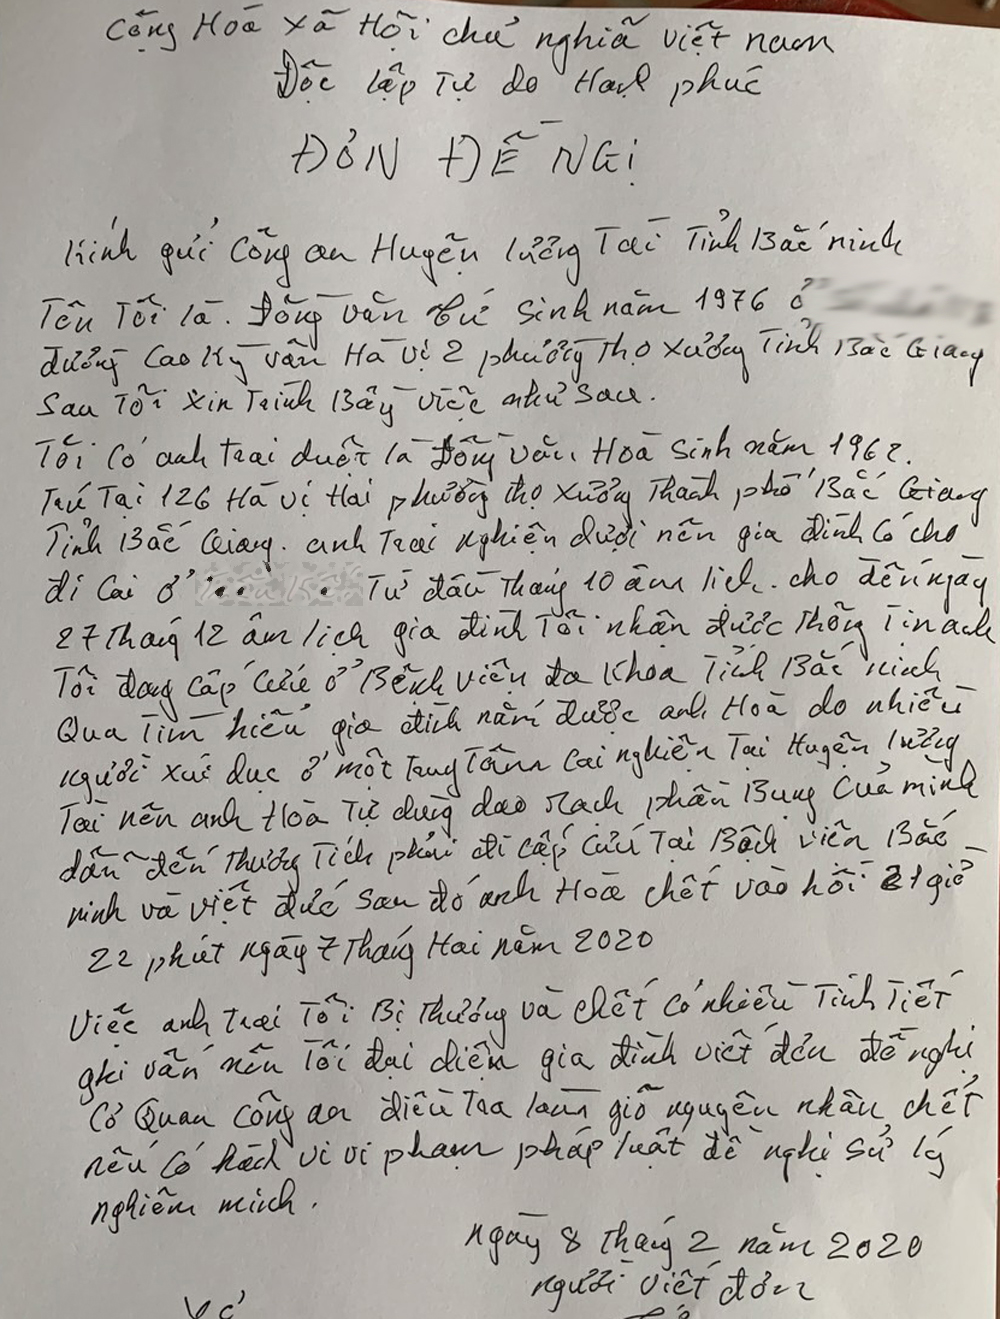 Cộng Hoà Xã Hội chủ nghĩa việt nam
Độc lập Tự do Hạnh phúc
ĐƠN ĐỀ NGHỊ
Kính gửi Công an Huyện lương Tài Tỉnh Bắc ninh
Tên Tôi là. Đồng văn Cứ Sinh năm 1976 ở
đường Cao Kỳ vân Hà vị 2 phường Thọ Xương Tỉnh Bắc Giang
Sau Tôi xin Trình Bầy việc như sau.
Tôi có anh trai duột là Đồng văn Hoà Sinh năm 1962.
Trú Tại 126 Hà vị Hai phường thọ xương Thành phố Bắc Giang
Tỉnh Bắc Giang. anh Trai nghiện dượi nên gia đình có cho
đi Cai ở Từ đầu Tháng 10 âm lịch. cho đến ngày
27 Tháng 12 âm lịch gia đình Tôi nhận được Thông Tin anh
Tôi đang cấp cứu ở Bệnh viện đa khoa Tỉnh Bắc ninh
Qua Tìm hiểu gia đình nắm được anh Hoà do nhiều
người xúc dục ở một Trung Tâm Cai nghiện Tại Huyện lương
Tài nên anh Hoà Tự dùng dao rạch phần Bụng Của mình
dẫn đến Thương Tích phải đi cấp cứu Tại Bệnh viện Bắc
ninh và việt đức Sau đó anh Hoà chết vào hồi 21 giờ
22 phút ngày 7 Tháng Hai năm 2020
Việc anh trai Tôi Bị Thương và chết có nhiều Tình Tiết
ghi vấn nên Tôi đại diện gia đình viết đơn đề nghị
Cơ Quan công an điều Tra làm giõ nguyên nhân chết
nếu có hành vi vi phạm pháp luật đề nghị Sử lý
nghiêm minh.
ngày 8 Tháng 2 năm 2020
người viết đơn
Vợ